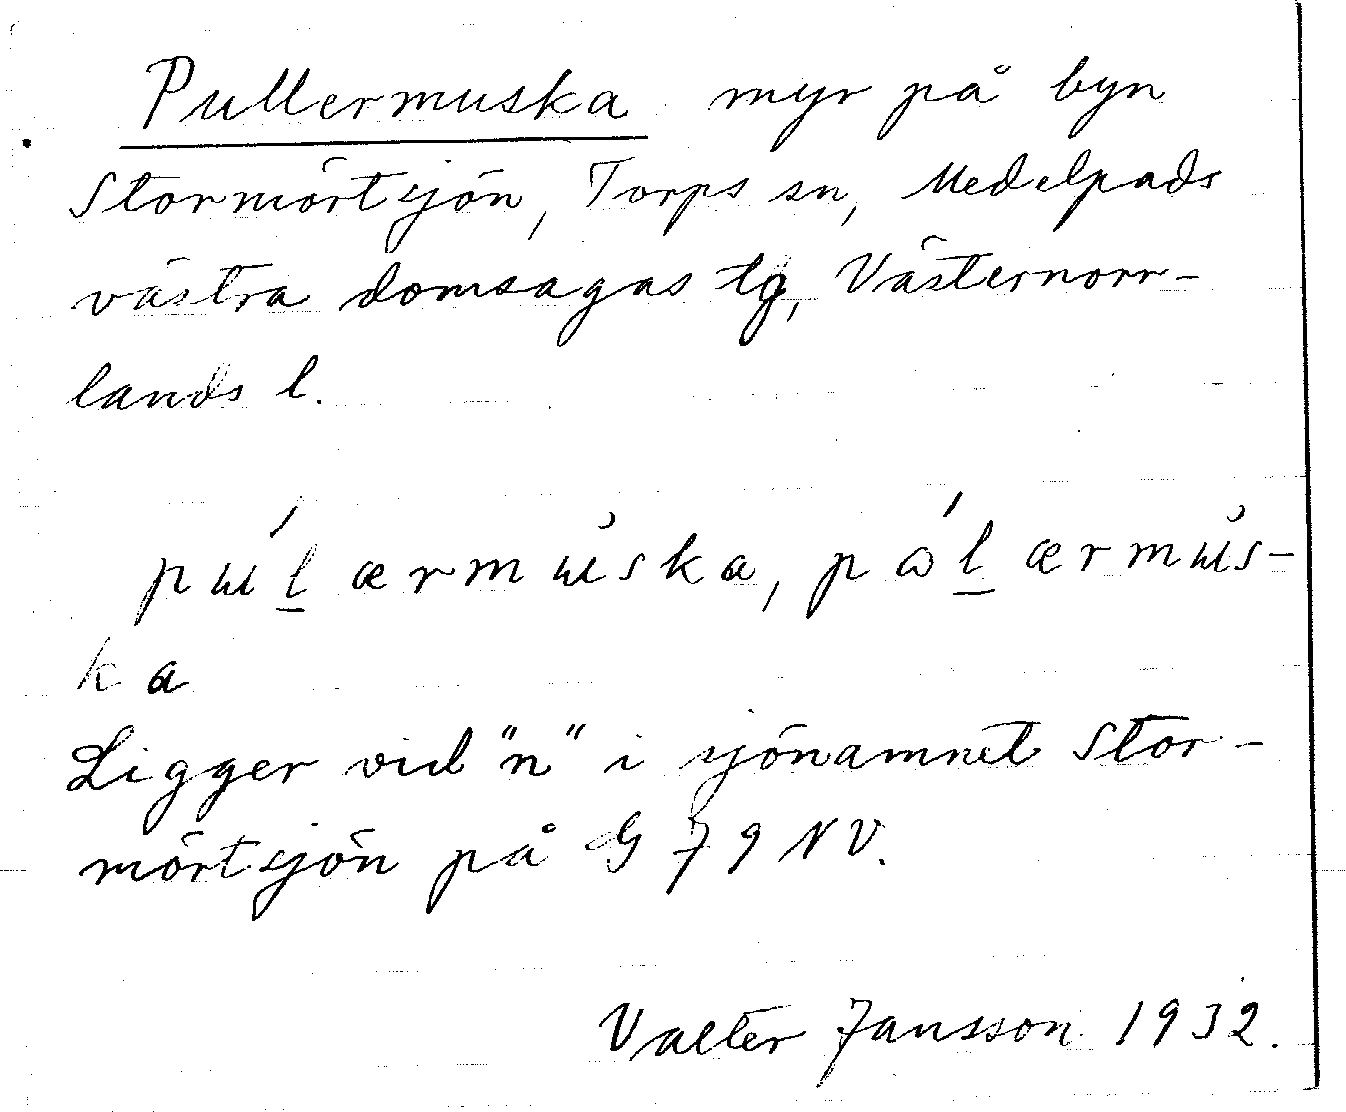 Pullermuska myr på byn
Stormörtsjön, Torps sn, Medelpads
västra domsagas tg, Västernorr-
lands l.
pɯ́l̲ærmɯ̀ska, pώl̲ærmɯ̀s-
ka
Ligger vid "n" i sjönamnet Stor-
mörtsjön på G 79 NV.
Valter Jansson 1932.